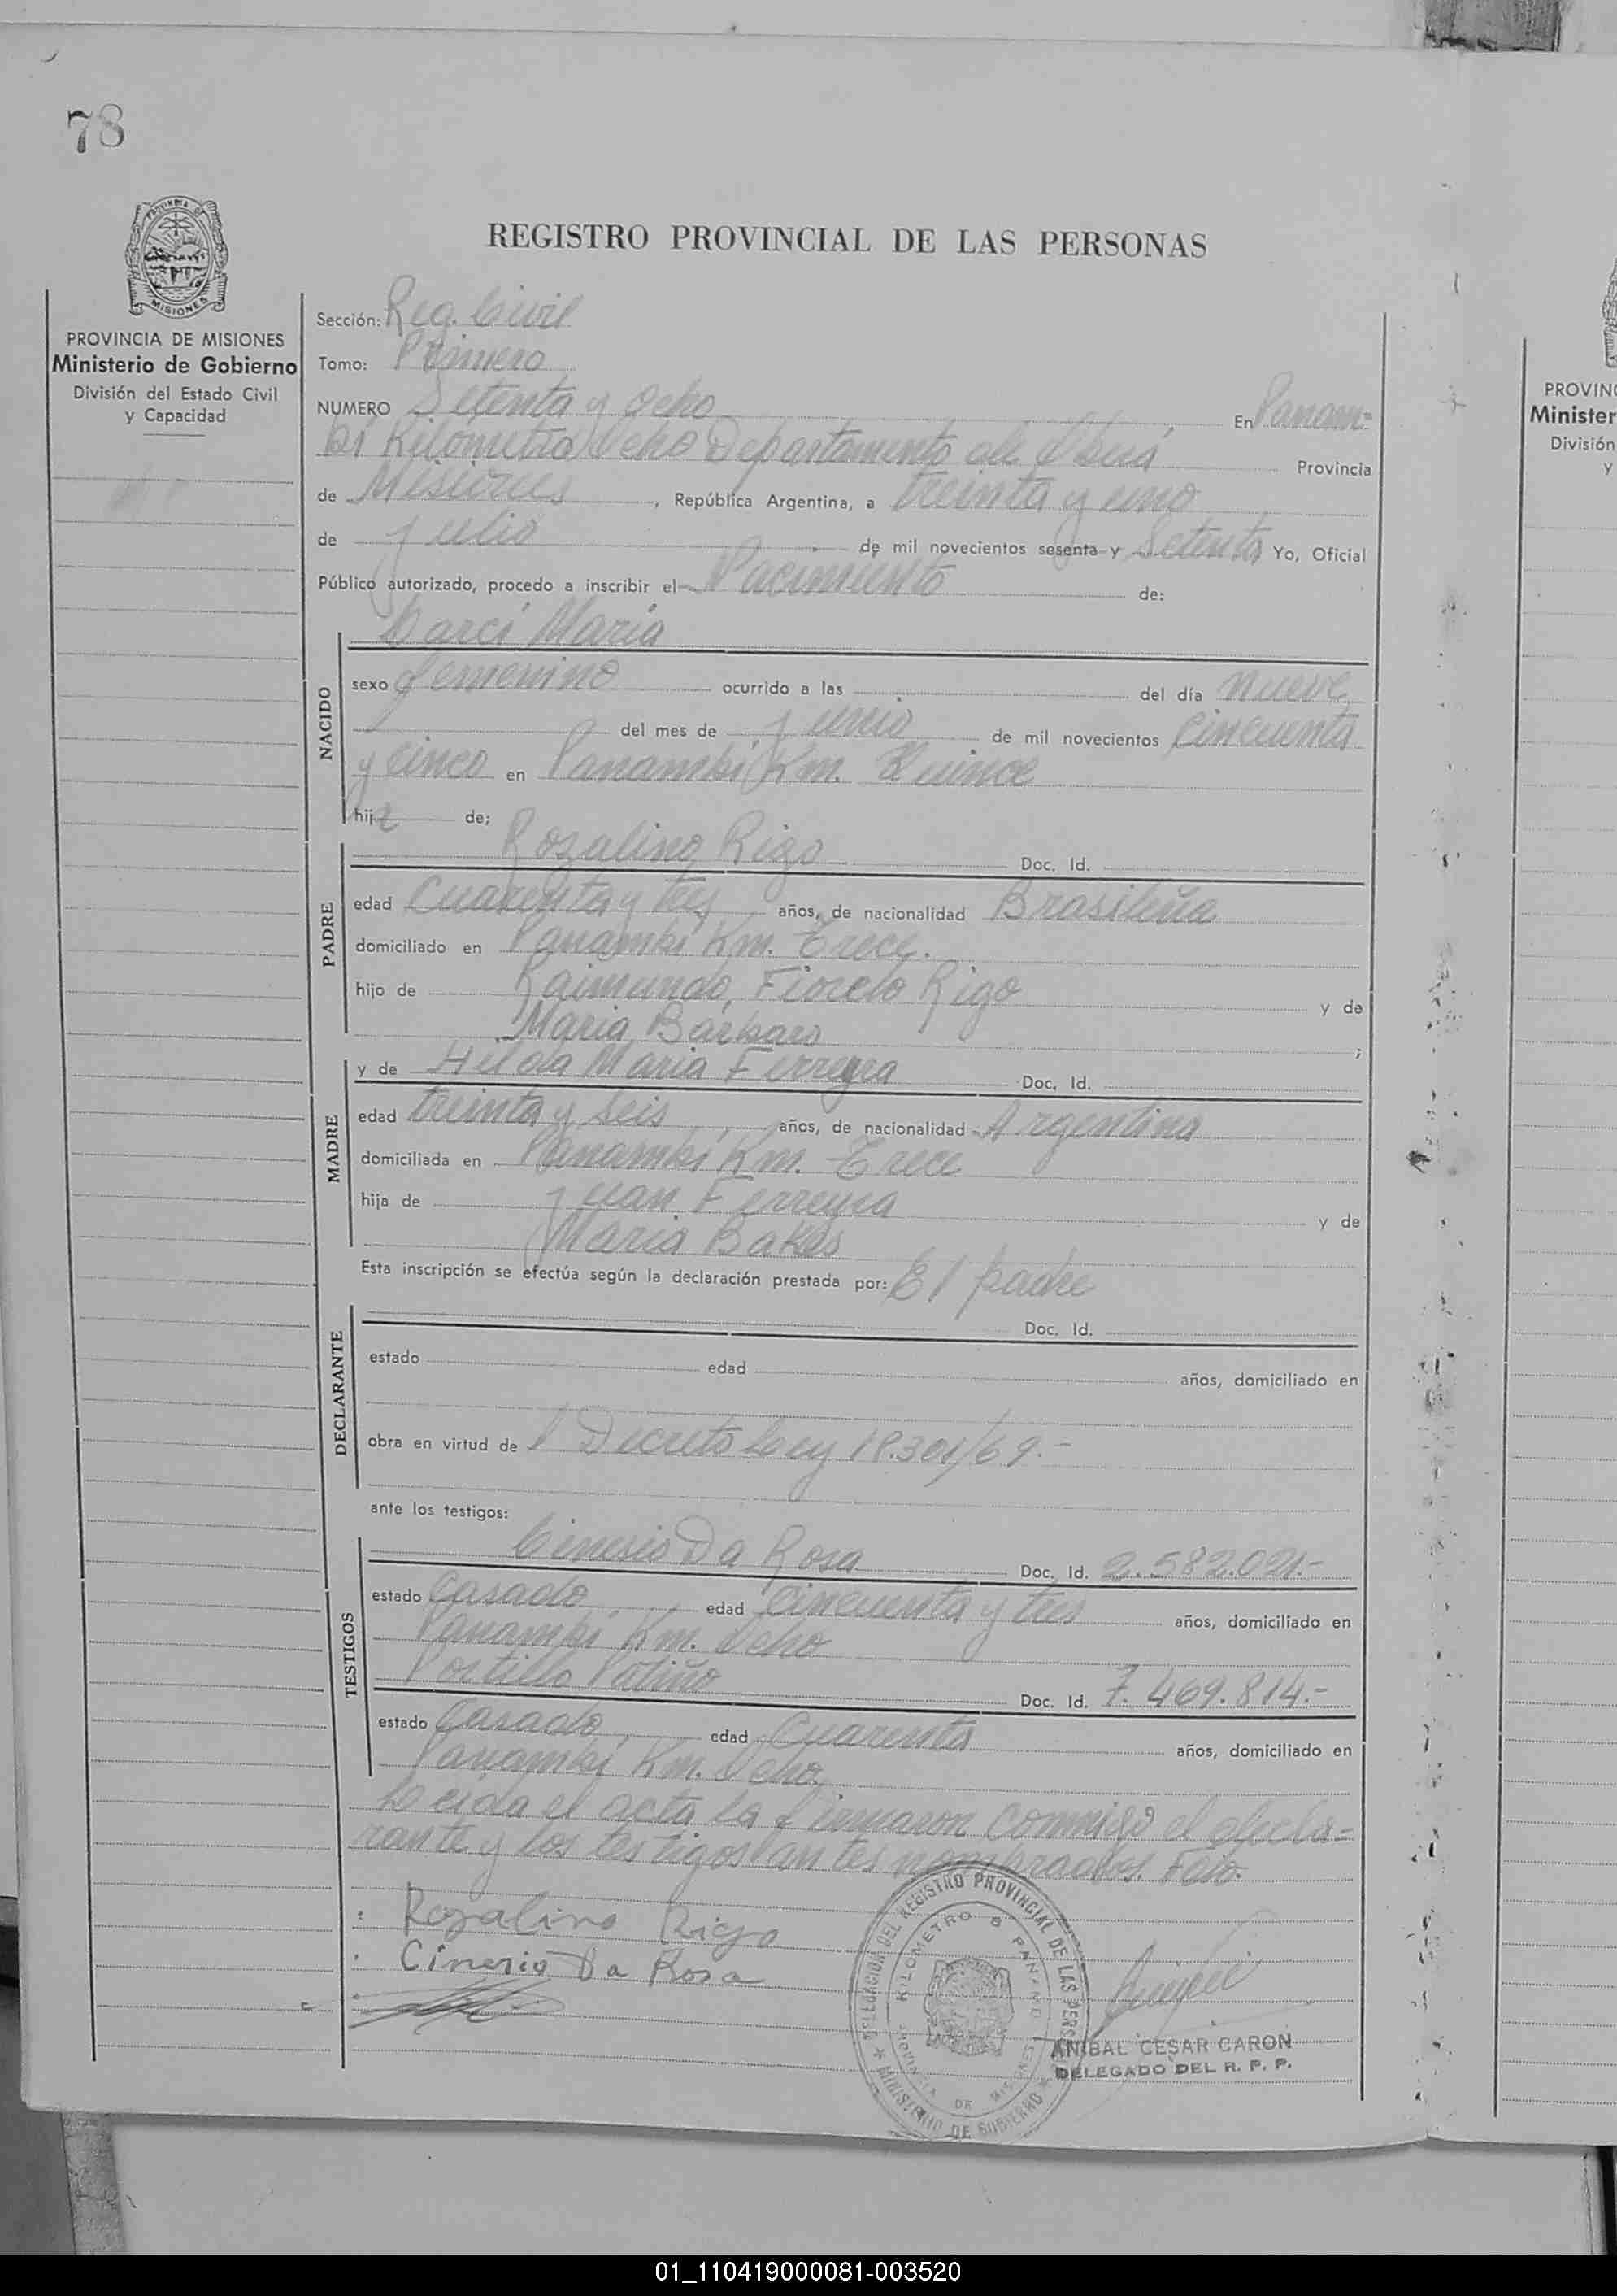 78
REGISTRO PROVINCIAL DE LAS PERSONAS
MISIONES
PROVINCIA DE MISIONES
Ministerio de Gobierno
División del Estado Civil
y Capacidad
Sección: Reg. Civil
Tomo: Primero
NUMERO Setenta y ocho En Panam=
bi Kilómetro Ocho Departamento de Oberá Provincia
de Misiones, República Argentina, a treinta y uno
de Julio de mil novecientos sesenta y Setenta Yo, Oficial
Público autorizado, procedo a inscribir el Nacimiento de:
NACIDO
María
sexo femenino ocurrido a las del día nueve
del mes de Junio de mil novecientos cincuenta
y cinco en Panambí Km. Quince
hija de;
PADRE
Rozalino Rigo Doc. Id.
edad Cuarenta y tres años, de nacionalidad Brasileña
domiciliado en Panambí Km. Trece.
hijo de Raimundo Fioreto Rigo y de
Maria Barbaro ;
MADRE
y de Hilda Maria Ferreyra Doc. Id.
edad treinta y seis años, de nacionalidad Argentina
domiciliada en Panambí Km. Trece
hija de Juan Ferreyra y de
Maria Bakes
Esta inscripción se efectúa según la declaración prestada por: El padre
DECLARANTE
Doc. Id.
estado edad años, domiciliado en
obra en virtud de l Decreto Ley 18.301/69.-
ante los testigos:
TESTIGOS
Cinesio Da Rosa Doc. Id. 2.582.021.-
estado Casado edad cincuenta y tres años, domiciliado en
Panambí Km. Ocho
Portillo Patiño Doc. Id. 7.469.814.-
estado Casado edad Cuarenta años, domiciliado en
Panambí Km. Ocho.
Leída el acta la firmaron conmigo el decla=
rante y los testigos antes nombrados.
Rozalino Rigo
Cinesio Da Rosa
DELEGACION DEL REGISTRO PROVINCIAL DE LAS PERSONAS
KILOMETRO 8 PANAMBI
PROVINCIA DE MISIONES
MINISTERIO DE GOBIERNO
ANIBAL CESAR CARON
DELEGADO DEL R. P. P.
PROVIN
Minister
División
y
01_110419000081-003520